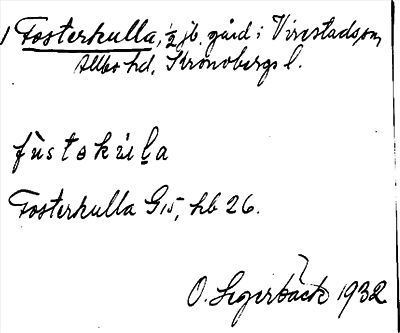 1 Fosterkulla, 1/2 jb. gård i Virestads sn,
Allbo hd, Kronobergs l.
fùstəkùḷa
Fosterkulla G15, hb 26.
O. Segerbäck 1932